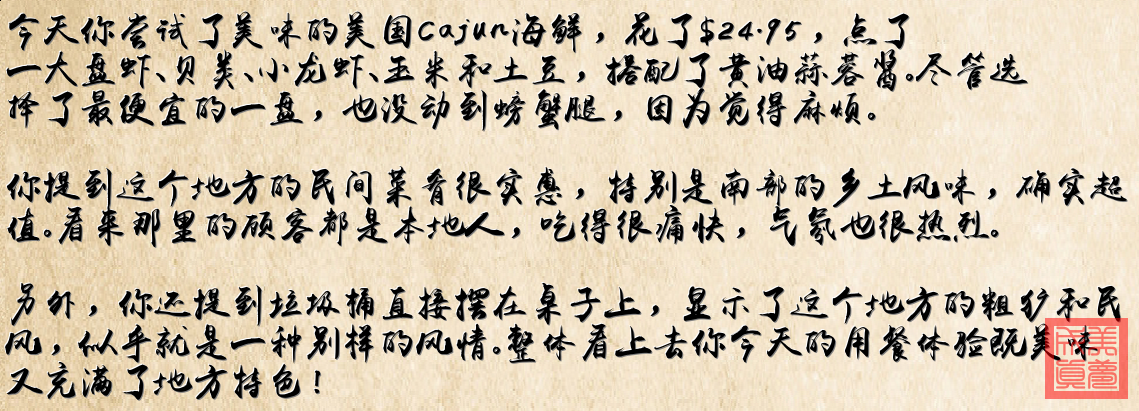 今天你尝试了美味的美国Cajun海鲜，花了$24.95，点了
一大盘虾、贝类、小龙虾、玉米和土豆，搭配了黄油蒜蓉酱。尽管选
择了最便宜的一盘，也没动到螃蟹腿，因为觉得麻烦。
你提到这个地方的民间菜肴很实惠，特别是南部的乡土风味，确实超
值。看来那里的顾客都是本地人，吃得很痛快，气氛也很热烈。
另外，你还提到垃圾桶直接摆在桌子上，显示了这个地方的粗犷和民
风，似乎就是一种别样的风情。整体看上去你今天的用餐体验既美味
又充满了地方特色！
美梦
成真